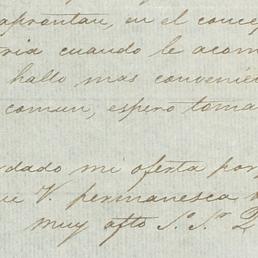 aprontan, en el conce
ria cuando le acom
hallo mas convenie
comun, espero toma
dado mi oferta por
ue V. permanesca
muy afto S. S.